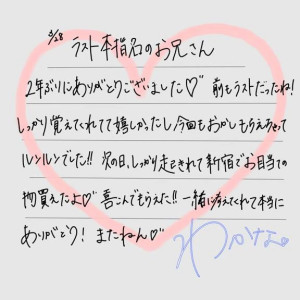 5/28
ラスト本指名のお兄さん
2年ぶりにありがとうございました♡ 前もラストだったね!
しっかり覚えてくれてて嬉しかったし今回もおかしもらえちゃって
ルンルンでした!! 次の日、しっかり起きれて新宿でお目当ての
物買えたよ♡ 喜こんでもらえた!! 一緒に考えてくれて本当に
ありがとう! またねん♡
わかな